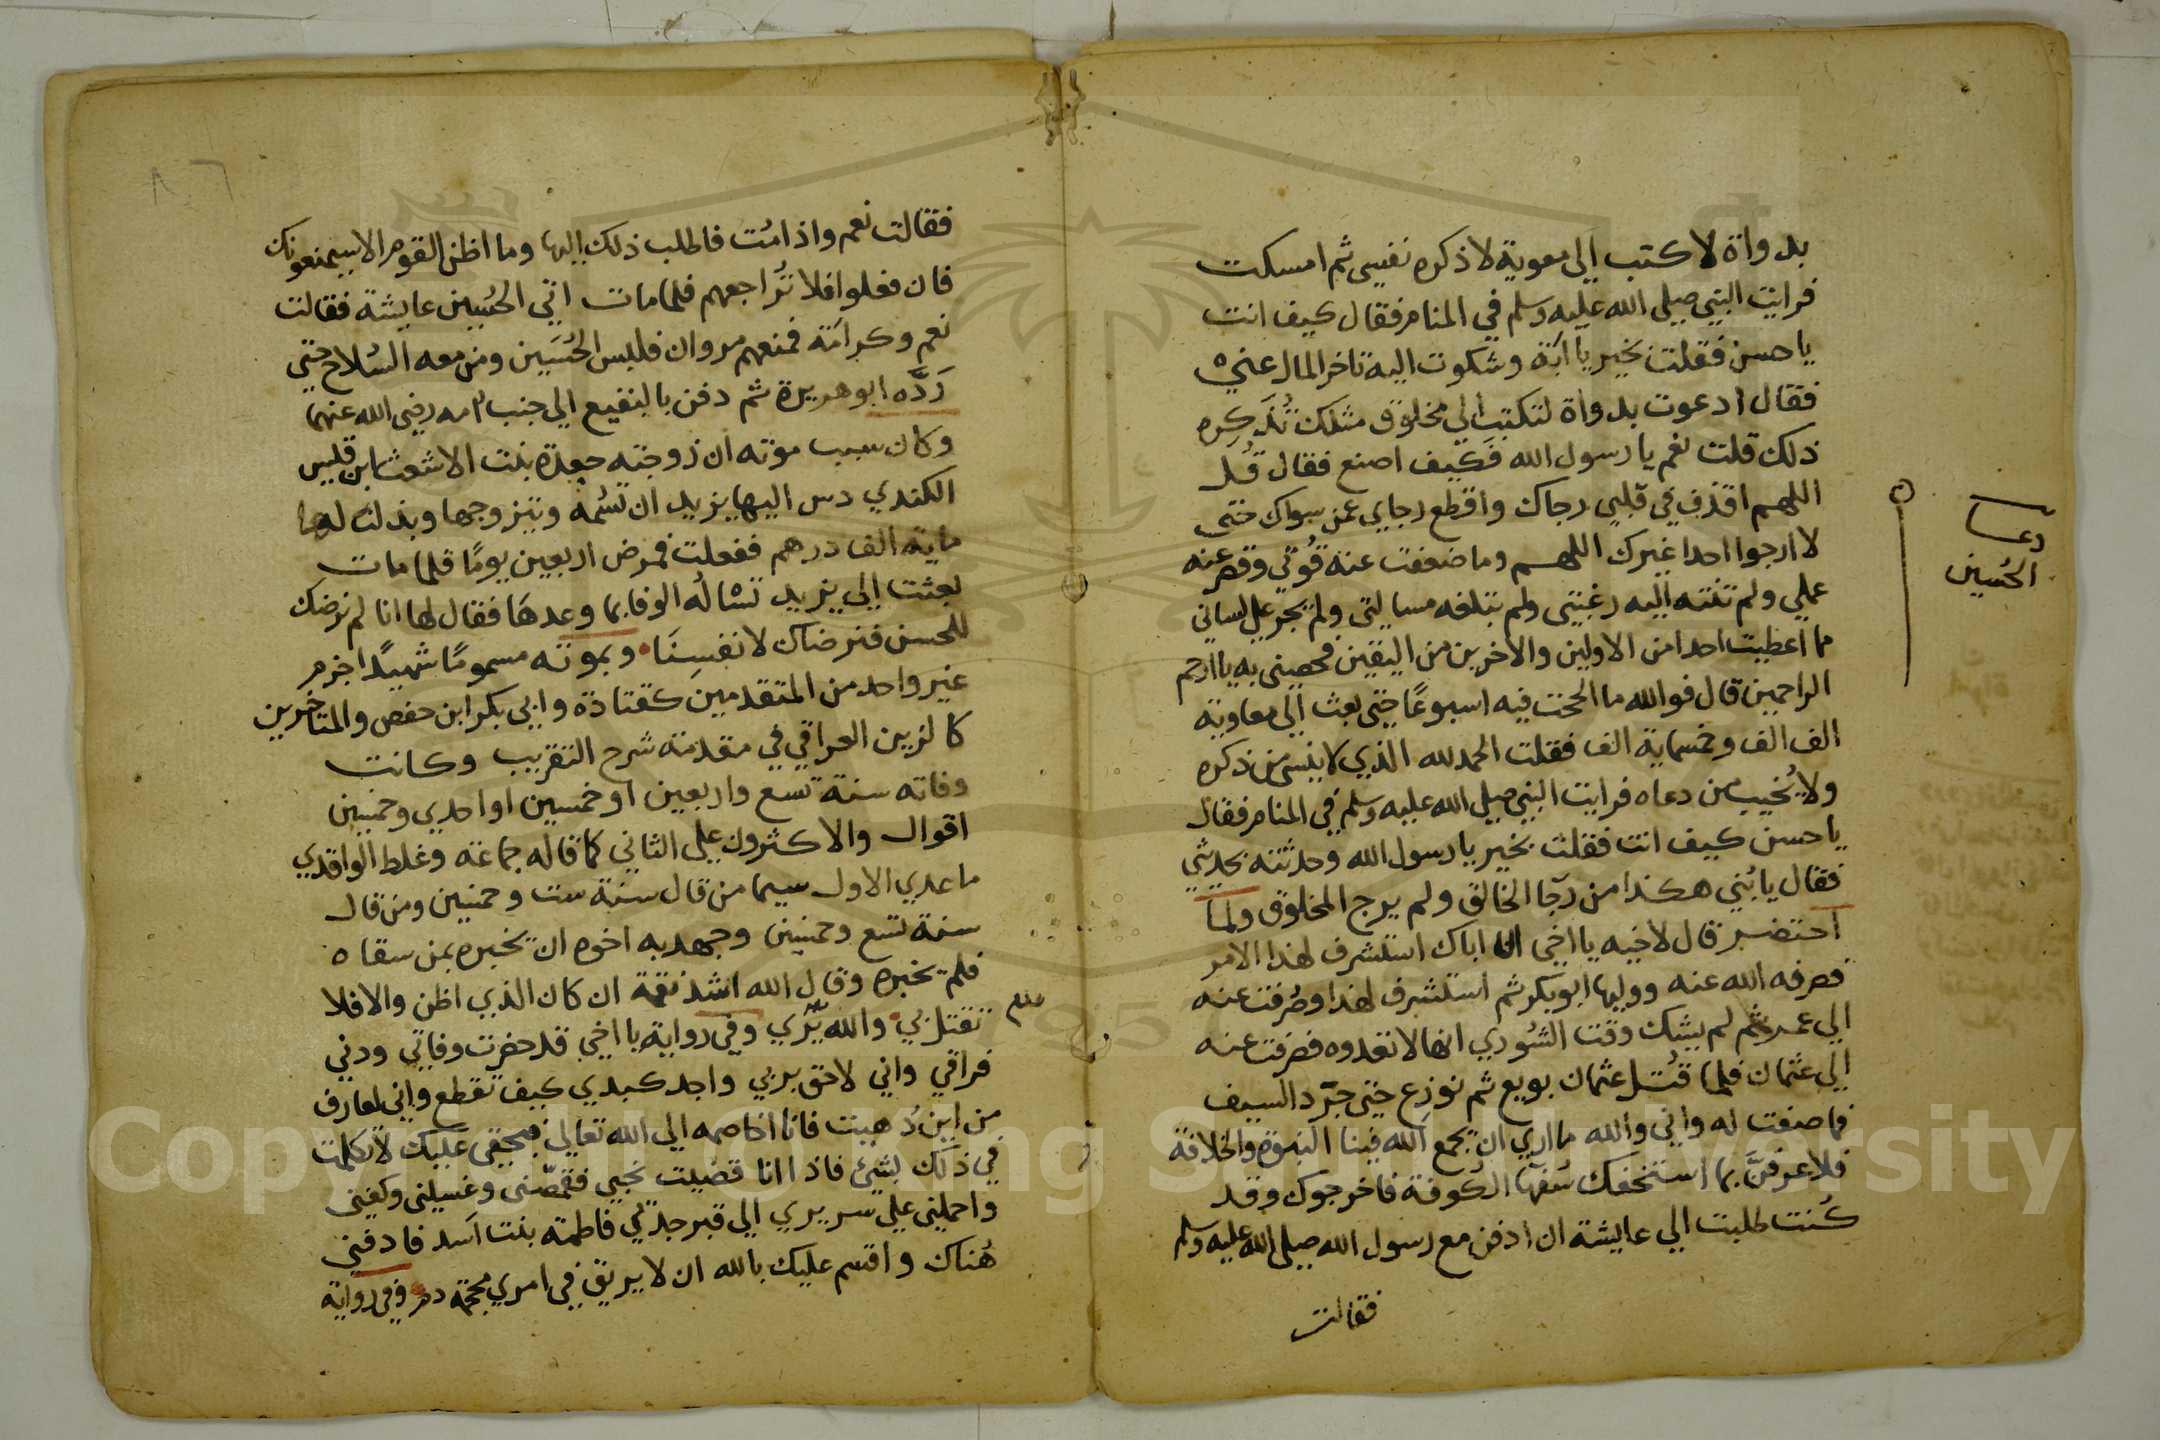 بدواة لاكتب الي معوية لاذكره نفسي ثم امسكت
فرايت النبي صلى الله عليه وسلم في المنام فقال كيف انت
ياحسن فقلت بخير يا ابة وشكوت اليه تاخر المال عني
فقال ادعوت بدواة لتكتب الي مخلوق مثلك تذكره
ذلك قلت نعم يا رسول الله فكيف اصنع فقال قل
اللهم اقذف في قلبي رجاك واقطع رجاي عمن سواك حتى
لا ارجوا احدا غيرك اللهم وما ضعفت عنه قوتي وقصر عنه
عملي ولم تنته اليه رغبتي ولم تبلغه مسالتي ولم يجر علي لساني
مما اعطيت احدا من الاولين والاخرين من اليقين فخصني به يا ارحم
الراحمين قال فوالله ما الححت فيه اسبوعا حتى بعث الي معاوية
الف الف وخمسماية الف فقلت الحمد لله الذي لا ينسى من ذكره
ولا يخيب من دعاه فرايت النبي صلى الله عليه وسلم في المنام فقال
ياحسن كيف انت فقلت بخير يا رسول الله وحدثته بحديثي
فقال يا بني هكذا من رجا الخالق ولم يرج المخلوق ولما
احتضر قال لاخيه يا اخي ان اباك استشرف لهذا الامر
فصرفه الله عنه ووليها ابو بكر ثم استشرف لهذا وصرفت عنه
الي عمر ثم لم يشك وقت الشوري انها لا تعدوه فصرفت عنه
الي عثمان فلما قتل عثمان بويع ثم نوزع حتى جرد السيف
فما صفت له واني والله ما اري ان يجمع الله فينا النبوة والخلافة
فلا عرفن بما استخفك سفها الكوفة فاخرجوك وقد
كنت طلبت الي عايشة ان ادفن مع رسول الله صلى الله عليه وسلم
فقالت
دعا
الحسين
٨٦
فقالت نعم واذا مت فاطلب ذلك اليها وما اظن القوم الا سيمنعونك
فان فعلوا فلا تراجعهم فلما مات اتي الحسين عايشة فقالت
نعم وكرامة فمنعهم مروان فلبس الحسين ومن معه السلاح حتي
رده ابو هريرة ثم دفن بالبقيع الي جنب امه رضي الله عنهما
وكان سبب موته ان زوجته جعدة بنت الاشعث ابن قيس
الكندي دس اليها يزيد ان تسمه ويتزوجها وبذل لها
ماية الف درهم ففعلت فمرض اربعين يوما فلما مات
بعثت الي يزيد تساله الوفا بما وعدها فقال لها انا لم نرضك
للحسن فنرضاك لانفسنا وبموته مسموما شهيدا جزم
غير واحد من المتقدمين كقتادة وابي بكر ابن حفص والمتاخرين
كالزين العراقي في مقدمة شرح التقريب وكانت
وفاته سنة تسع واربعين او خمسين او احدي وخمسين
اقوال والاكثرون علي الثاني كما قاله جماعة وغلط الواقدي
ما عدي الاول سيما من قال سنة ست وخمسين ومن قال
سنة تسع وخمسين وجهد به اخوه ان يخبره بمن سقاه
فلم يخبره وقال الله اشد نقمة ان كان الذي اظن والا فلا
تقتل بي والله بري وفي رواية يا اخي قد حضرت وفاتي ودني
فراقي واني لاحق بربي واجد كبدي كيف تقطع واني لعارف
من اين دهيت فانا اخاصمه الي الله تعالي فبحقي عليك لا تكلمت
في ذلك بشيئ فاذا انا قضيت نحبي فقمصني وغسلني وكفني
واحملني علي سريري الي قبر جدتي فاطمة بنت اسد فادفني
هناك واقسم عليك بالله ان لا يريق في امري محجمة دم وفي رواية
Copyright © King Saud University